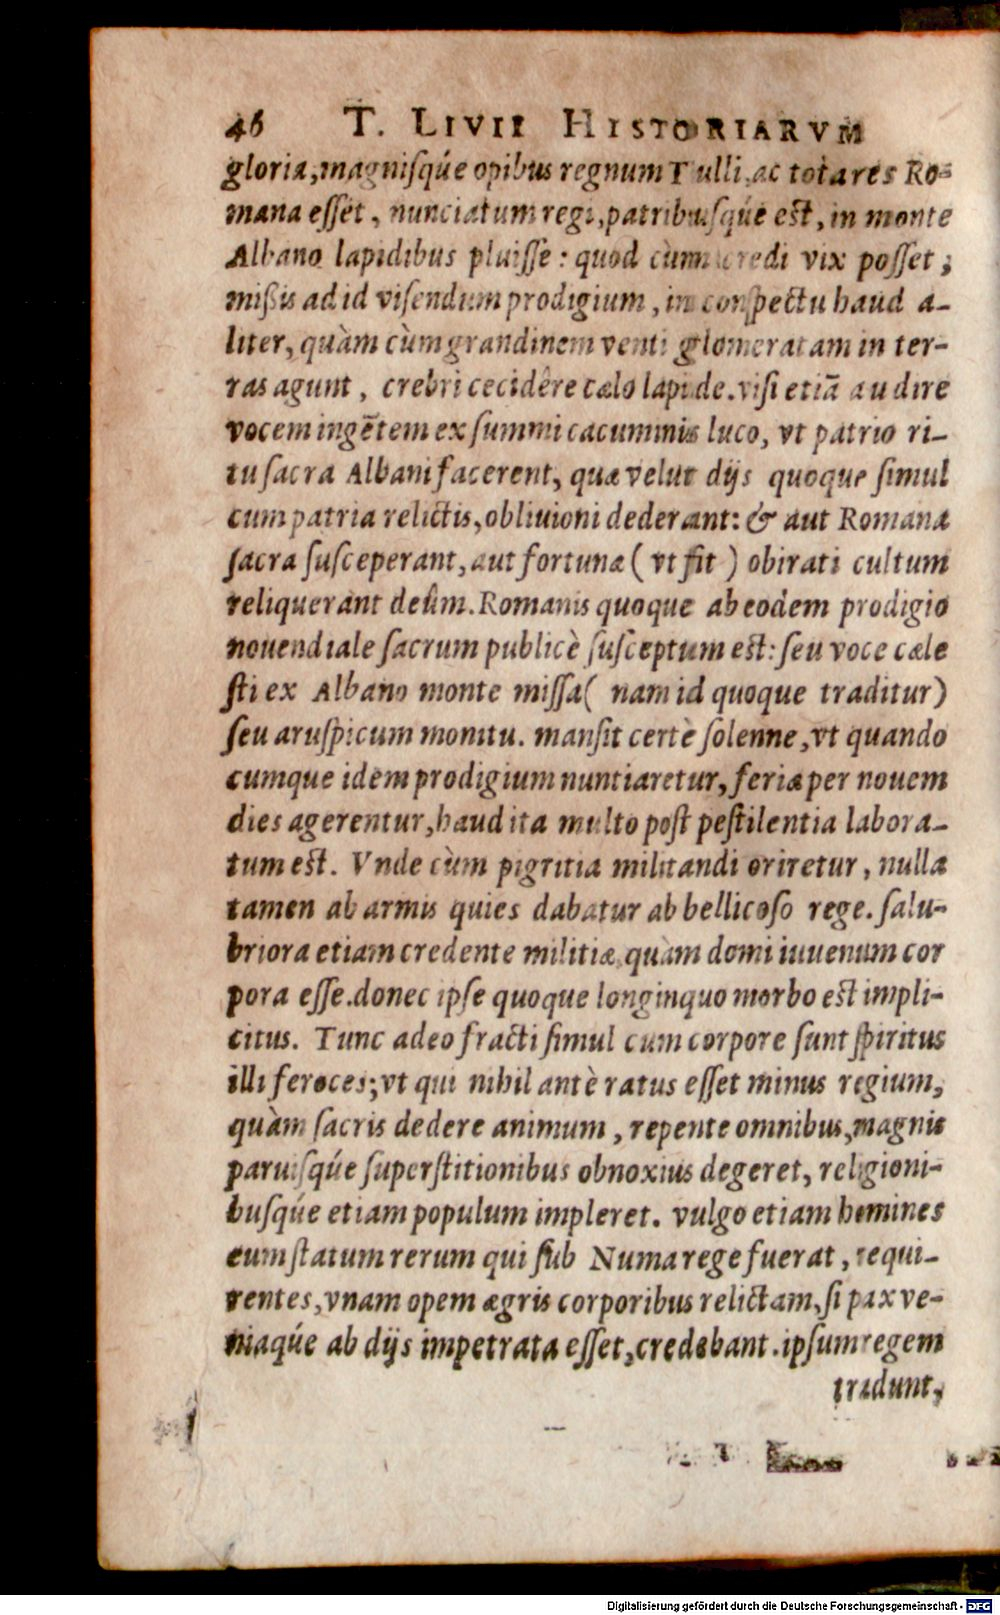 46 T. LIVII HISTORIARVM
gloria, magnisqúe opibus regnum Tulli, ac tota res Ro-
mana esset, nunciatum regi, patribusqúe est, in monte
Albano lapidibus pluisse: quod cùm credi vix posset;
missis ad id visendum prodigium, in conspectu haud a-
liter, quàm cùm grandinem venti glomeratam in ter-
ras agunt, crebri cecidêre cælo lapide. visi etiã audire
vocem ingẽtem ex summi cacuminis luco, vt patrio ri-
tu sacra Albani facerent, quæ velut dijs quoque simul
cum patria relictis, obliuioni dederant: & aut Romana
sacra susceperant, aut fortunæ (vt fit) obirati cultum
reliquerant deûm. Romanis quoque ab eodem prodigio
nouendiale sacrum publicè susceptum est: seu voce cæle
sti ex Albano monte missa (nam id quoque traditur)
seu aruspicum monitu. mansit certè solenne, vt quando
cumque idem prodigium nuntiaretur, feriæ per nouem
dies agerentur, haud ita multo post pestilentia labora-
tum est. Vnde cùm pigritia militandi oriretur, nulla
tamen ab armis quies dabatur ab bellicoso rege. salu-
briora etiam credente militiæ, quàm domi iuuenum cor
pora esse. donec ipse quoque longinquo morbo est impli-
citus. Tunc adeo fracti simul cum corpore sunt spiritus
illi feroces; vt qui nihil antè ratus esset minus regium,
quàm sacris dedere animum, repente omnibus, magnis
paruisqúe superstitionibus obnoxius degeret, religioni-
busqúe etiam populum impleret. vulgo etiam homines
eum statum rerum qui sub Numa rege fuerat, requi-
rentes, vnam opem ægris corporibus relictam, si pax ve-
niaqúe ab dijs impetrata esset, credebant. ipsum regem
tradunt,
Digitalisierung gefördert durch die Deutsche Forschungsgemeinschaft - DFG